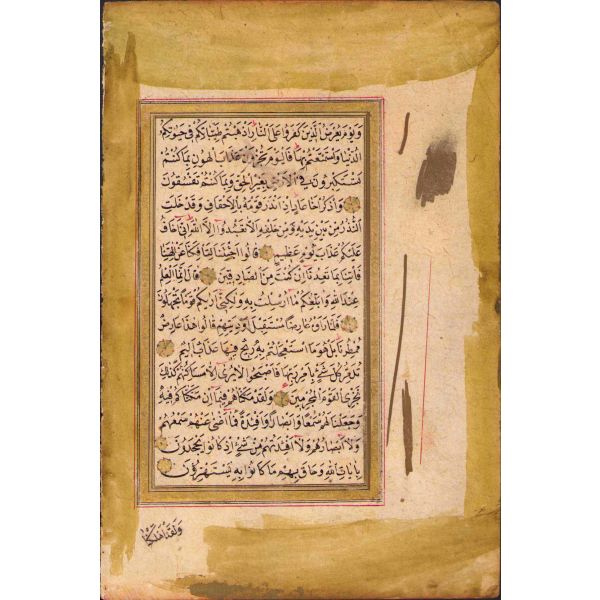 وَيَوْمَ يُعْرَضُ الَّذِينَ كَفَرُوا عَلَى النَّارِ اَذْهَبْتُمْ طَيِّبَاتِكُمْ فِي حَيٰوتِكُمُ
الدُّنْيَا وَاسْتَمْتَعْتُمْ بِهَا فَالْيَوْمَ تُجْزَوْنَ عَذَابَ الْهُونِ بِمَا كُنْتُمْ
تَسْتَكْبِرُونَ فِي الْاَرْضِ بِغَيْرِ الْحَقِّ وَبِمَا كُنْتُمْ تَفْسُقُونَ
وَاذْكُرْ اَخَا عَادٍ اِذْ اَنْذَرَ قَوْمَهُ بِالْاَحْقَافِ وَقَدْ خَلَتِ
النُّذُرُ مِنْ بَيْنِ يَدَيْهِ وَمِنْ خَلْفِهِ اَلَّا تَعْبُدُوا اِلَّا اللّٰهَ اِنِّي اَخَافُ
عَلَيْكُمْ عَذَابَ يَوْمٍ عَظِيمٍ قَالُوا اَجِئْتَنَا لِتَاْفِكَنَا عَنْ اٰلِهَتِنَا
فَاْتِنَا بِمَا تَعِدُنَا اِنْ كُنْتَ مِنَ الصَّادِقِينَ قَالَ اِنَّمَا الْعِلْمُ
عِنْدَ اللّٰهِ وَاُبَلِّغُكُمْ مَا اُرْسِلْتُ بِهِ وَلٰكِنِّي اَرٰيكُمْ قَوْمًا تَجْهَلُونَ
فَلَمَّا رَاَوْهُ عَارِضًا مُسْتَقْبِلَ اَوْدِيَتِهِمْ قَالُوا هٰذَا عَارِضٌ
مُمْطِرُنَا بَلْ هُوَ مَا اسْتَعْجَلْتُمْ بِهِ رِيحٌ فِيهَا عَذَابٌ اَلِيمٌ
تُدَمِّرُ كُلَّ شَيْءٍ بِاَمْرِ رَبِّهَا فَاَصْبَحُوا لَا يُرٰى اِلَّا مَسَاكِنُهُمْ كَذٰلِكَ
نَجْزِي الْقَوْمَ الْمُجْرِمِينَ وَلَقَدْ مَكَّنَّاهُمْ فِيمَا اِنْ مَكَّنَّاكُمْ فِيهِ
وَجَعَلْنَا لَهُمْ سَمْعًا وَاَبْصَارًا وَاَفْئِدَةً فَمَا اَغْنٰى عَنْهُمْ سَمْعُهُمْ
وَلَا اَبْصَارُهُمْ وَلَا اَفْئِدَتُهُمْ مِنْ شَيْءٍ اِذْ كَانُوا يَجْحَدُونَ
بِاٰيَاتِ اللّٰهِ وَحَاقَ بِهِمْ مَا كَانُوا بِهِ يَسْتَهْزِؤُنَ
وَلَقَدْ اَهْلَكْنَا